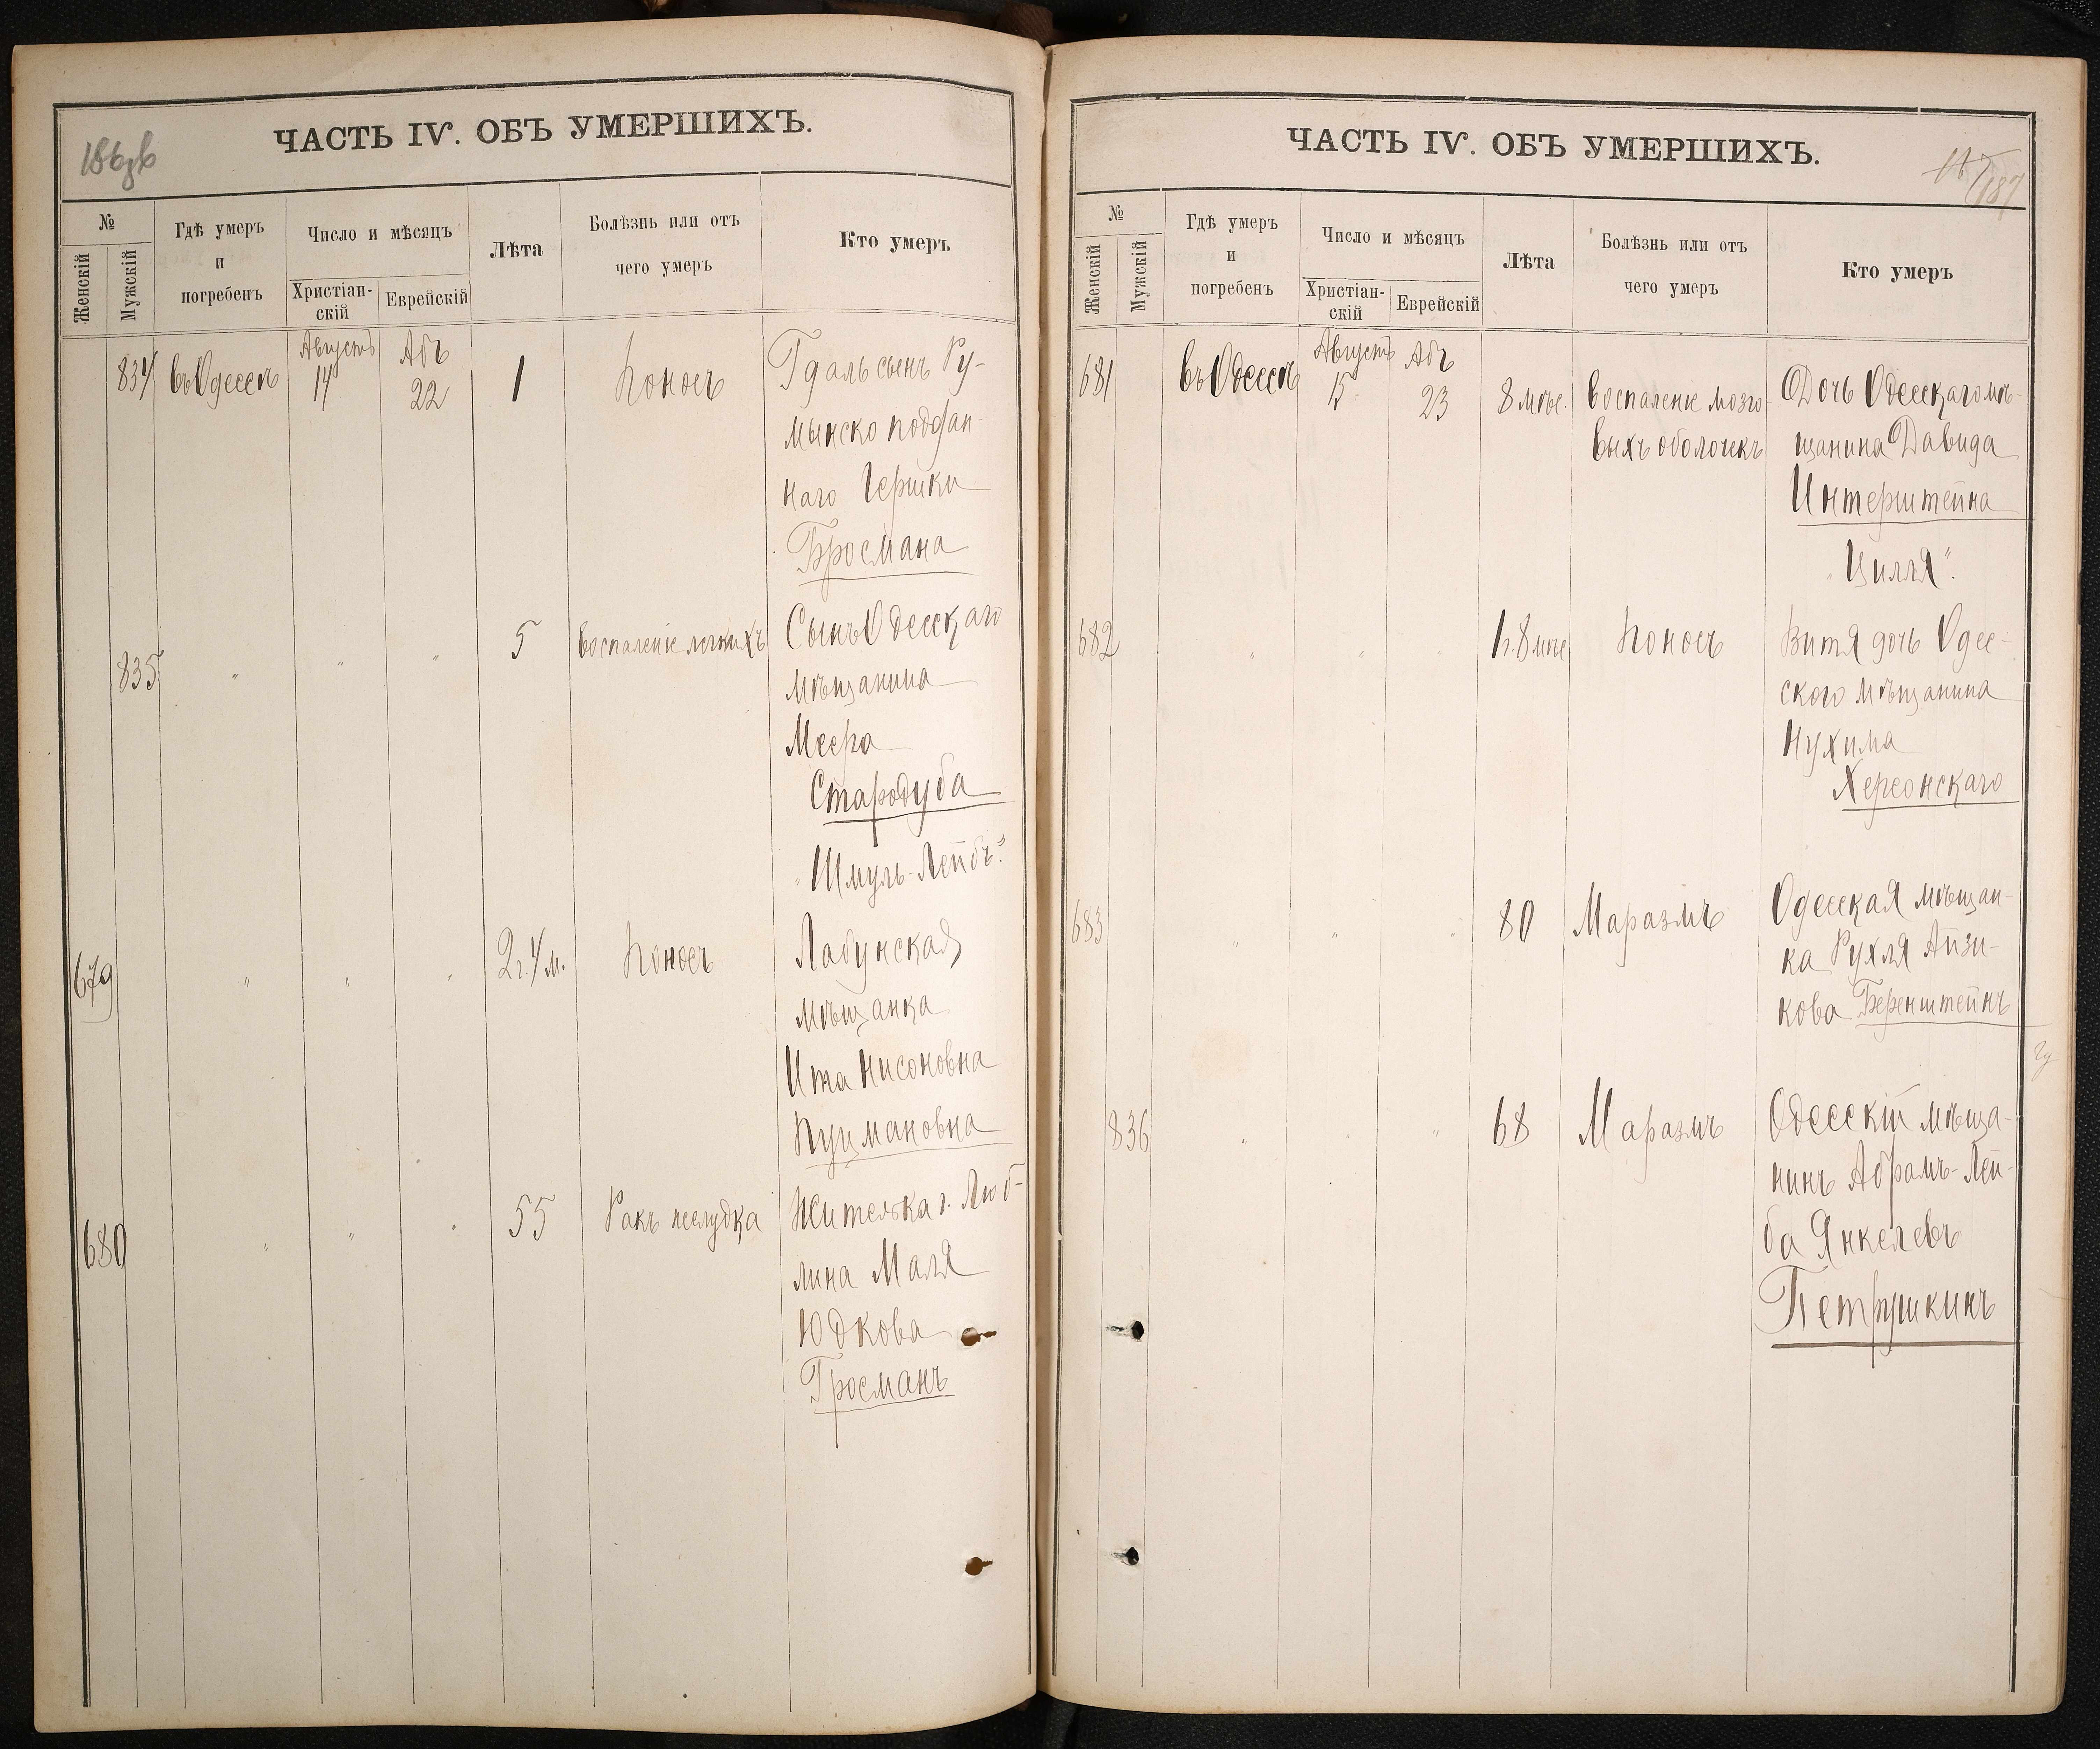 ЧАСТЬ IV. ОБЪ УМЕРШИХЪ.
№
Женскій
Мужскій
Гдѣ умеръ
и
погребенъ
Число и мѣсяцъ
Христіан-
скій
Еврейскій
Лѣта
Болѣзнь или отъ
чего умеръ
Кто умеръ
834 въ Одессѣ Августъ 14 Абъ 22 1 Поносъ Гдаль сынъ Ру-
мынско поддан-
наго Гершки
Бросмана
835 " " " 5 Воспаленіе легкихъ Сынъ Одесскаго
мѣщанина
Меера
Стародуба
"Шмуль-Лейбъ".
679 " " " 2 г. 4 м. Поносъ Лабунская
мѣщанка
Ита Нисоновна
Пуцмановна
680 " " " 55 Ракъ желудка Жителька г. Люб-
лина Маля
Юдкова
Гросманъ
ЧАСТЬ IV. ОБЪ УМЕРШИХЪ.
187
№
Женскій
Мужскій
Гдѣ умеръ
и
погребенъ
Число и мѣсяцъ
Христіан-
скій
Еврейскій
Лѣта
Болѣзнь или отъ
чего умеръ
Кто умеръ
681 въ Одессѣ Августъ 15 Абъ 23 8 мѣс. Воспаленіе мозго-
выхъ оболочекъ
Дочь Одесскаго мѣ-
щанина Давида
Интерштейна
"Цилля".
682 " " " 1 г. 8 мѣс Поносъ Витя дочь Одес-
ского мѣщанина
Нухима
Херсонскаго
683 " " " 80 Маразмъ Одесская мѣщан-
ка Рухля Айзи-
кова Беренштейнъ
836 " " " 68 Маразмъ Одесскій мѣща-
нинъ Абрамъ-Лей-
ба Янкелевъ
Петрушкинъ